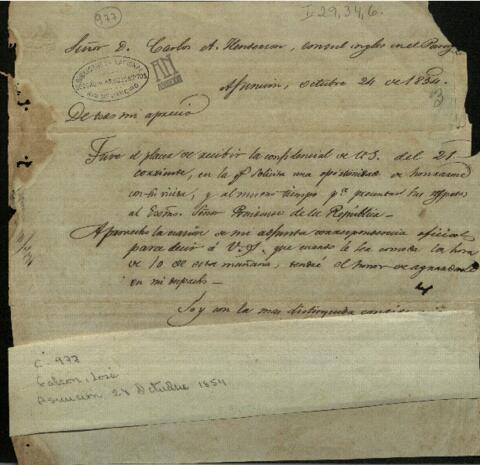 977
I-29,34,6.
Señor D. Carlos A. Henderson, consul ingles en el Parag
Asuncion, octubre 24 de 1854.
De todo mi aprecio
Tuve el placer de recibir la confidencial de V.S. del 21
corriente, en la q.e solicita una oportunidad de honrarme
con su visita, y al mismo tiempo p.a presentar sus respetos
al Exmo. Señor Presidente de la República.
Aprovecho la ocasion de mi adjunta correspondencia oficial
para decir á V.S. que cuando le sea comoda la hora
de 10 de esta mañana, tendré el honor de aguardarle
en mi despacho.
Soy con la mas distinguida
C. 977
Falcon, José
Asuncion 24 Octubre 1854